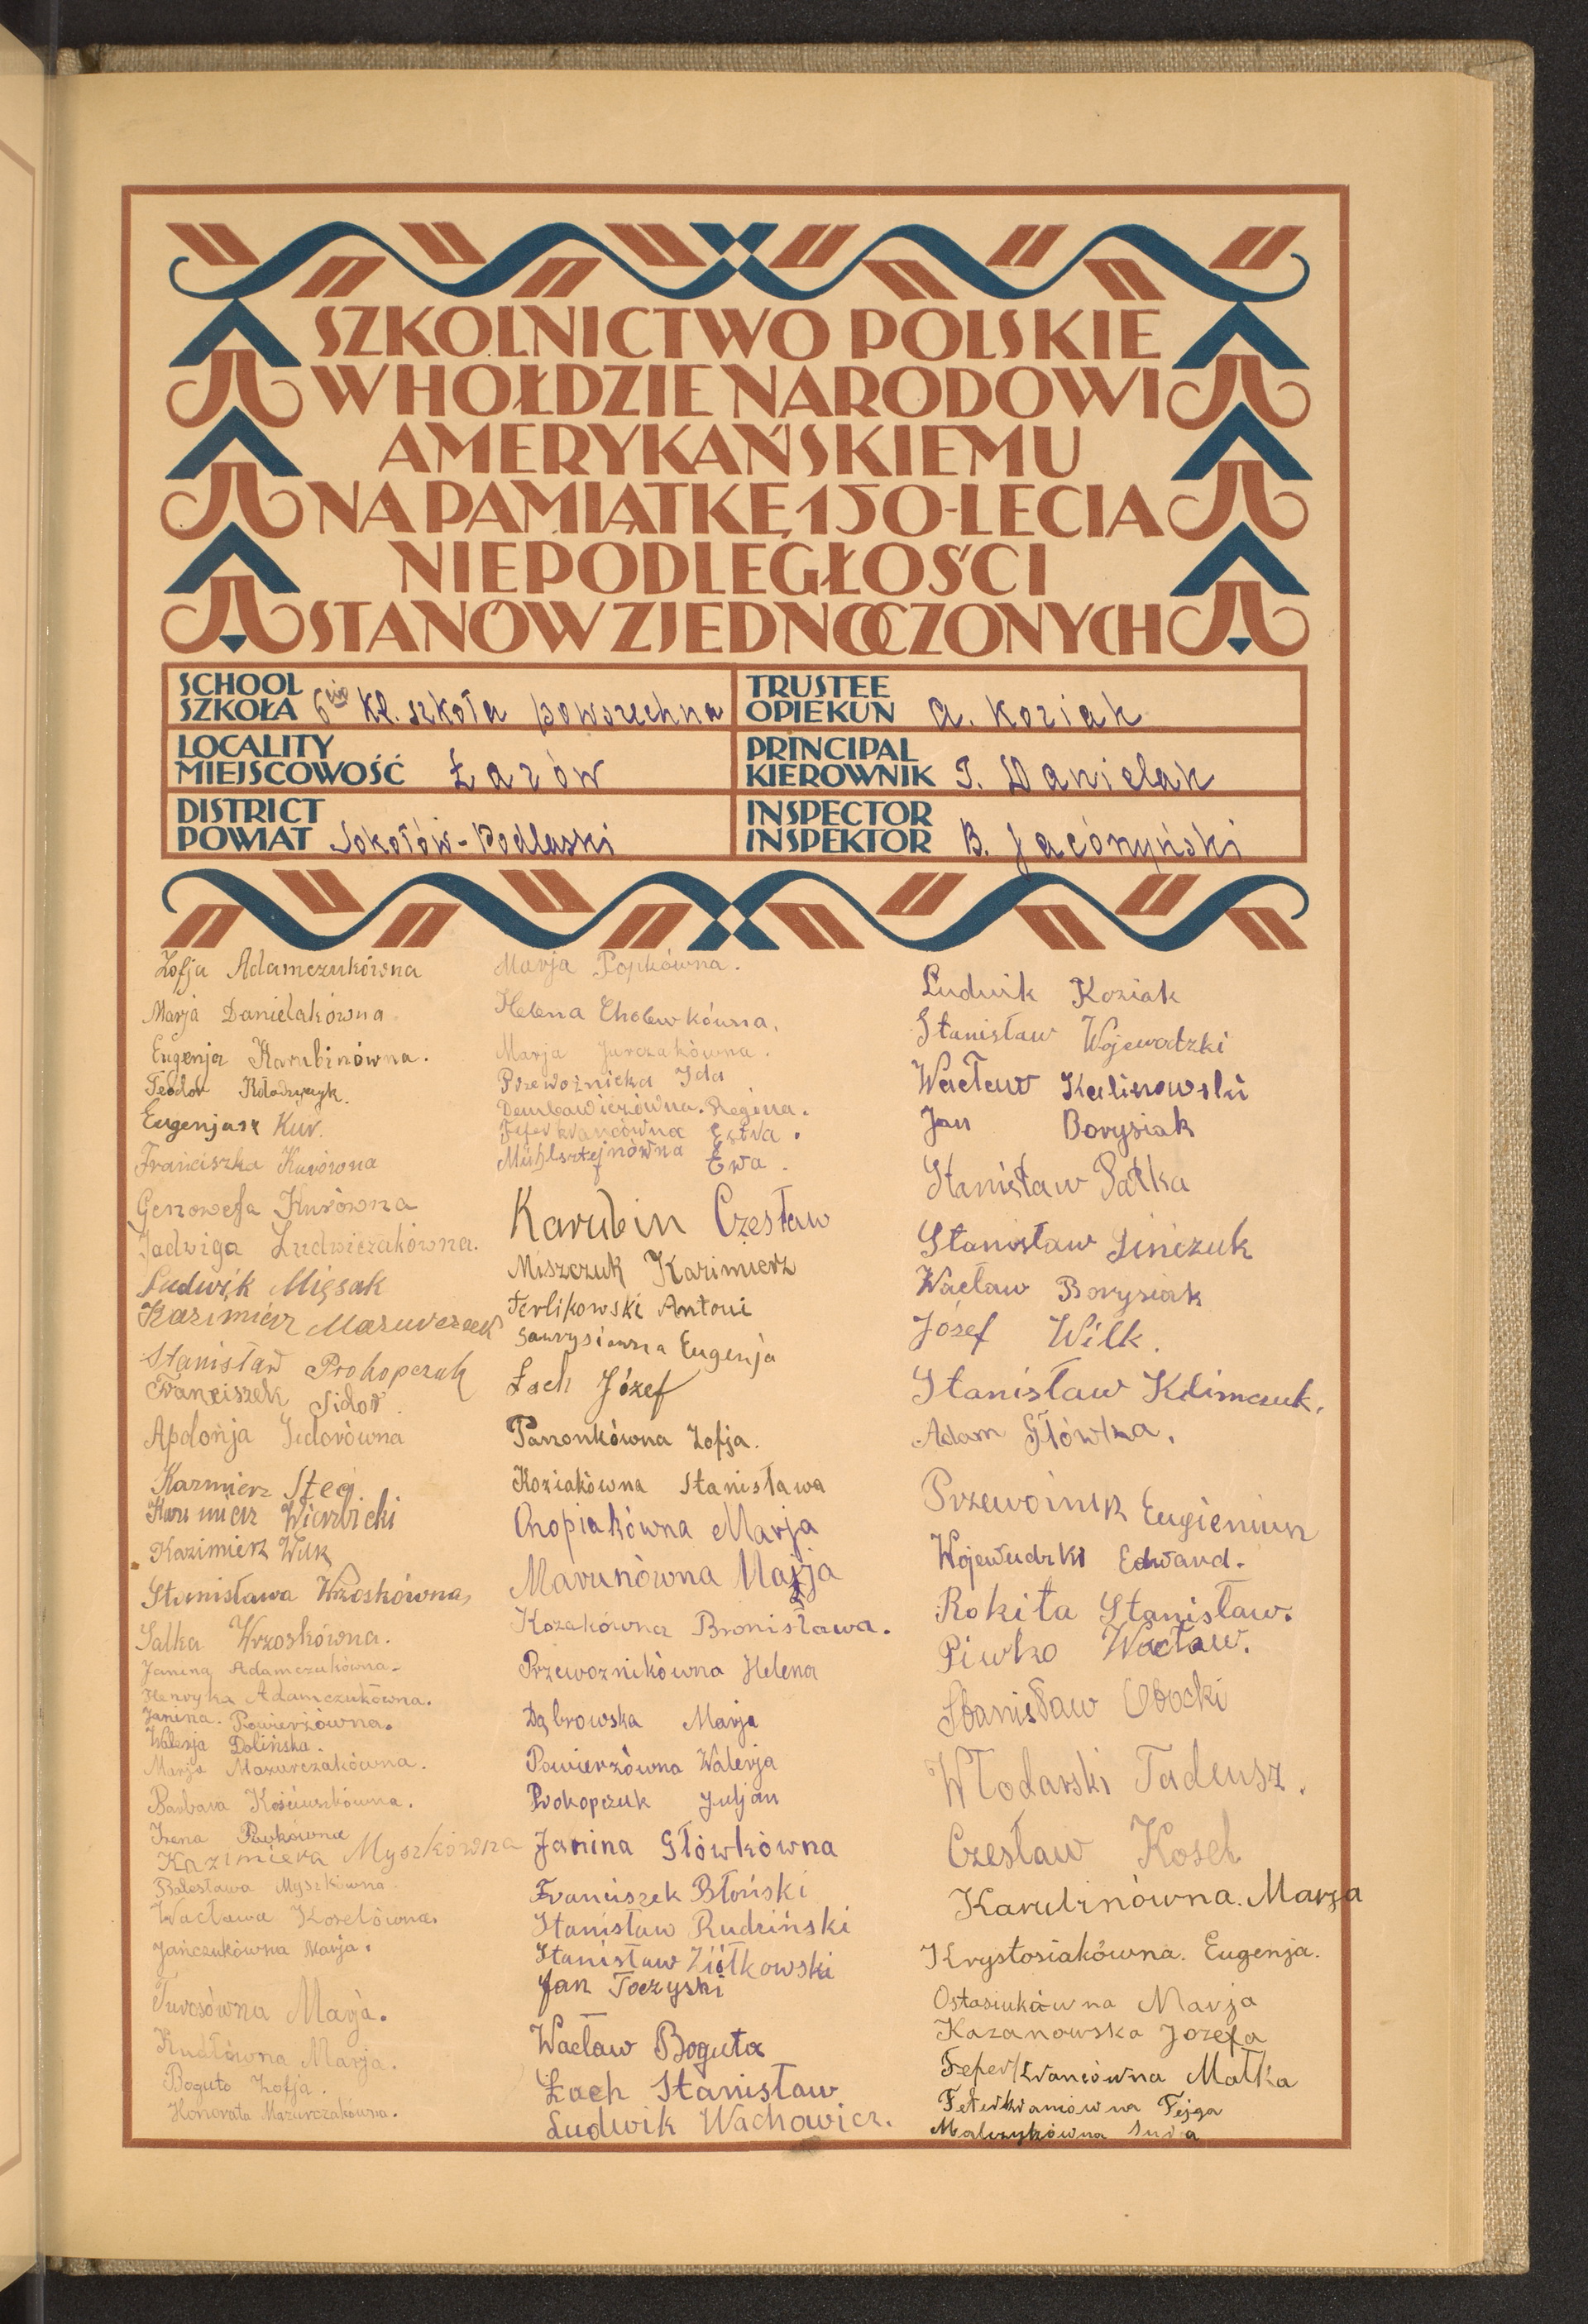 SZKOLNICTWO POLSKIE
W HOŁDZIE NARODOWI
AMERYKAŃSKIEMU
NA PAMIĄTKĘ 150-LECIA
NIEPODLEGŁOŚCI
STANÓW ZJEDNOCZONYCH
SCHOOL
SZKOŁA 6cio kl. szkoła powszechna
TRUSTEE
OPIEKUN A. Koziak
LOCALITY
MIEJSCOWOŚĆ Łazów
PRINCIPAL
KIEROWNIK J. Danielak
DISTRICT
POWIAT Sokołów-Podlaski
INSPECTOR
INSPEKTOR B. Jacórzyński
Zofja Adamczukówna
Marja Danielakówna
Eugenja Karubinówna.
Teodor Kołodziejczyk.
Eugenjusz Kur.
Franciszka Kurówna
Genowefa Kurówna
Jadwiga Ludwiczakówna.
Ludwik Mięsak
Kazimierz Mazurczak
Stanisław Prokopczuk
Franciszek Sidor.
Apolonja Sidorówna
Kazimierz Steć
Kazimierz Wierzbicki
Kazimierz Wilk
Stanisława Wrzoskówna,
Salka Wrzoskówna.
Janina Adamczukówna.
Henryka Adamczukówna.
Janina. Powierzówna.
Walerja Dolińska.
Marja Mazurczakówna.
Barbara Kościuszkówna.
Irena Pawkówna
Kazimiera Myszkówna
Bolesława Myszkówna
Wacława Koselówna.
Jańczukówna Marja.
Turosówna Marja.
Kudłówna Marja.
Boguto Zofja.
Honorata Mazurczakówna.
Marja Popkówna.
Helena Cholewkówna.
Marja Jurczakówna.
Przewoźnicka Ida
Dembowiczówna. Regina.
Feferkrancówna Estra.
Mühlsztejnówna Ewa.
Karubin Czesław
Miszczuk Kazimierz
Terlikowski Antoni
Gawrysiówna Eugenja
Łach Józef
Panonkówna Zofja.
Koziakówna Stanisława
Chopiakówna Marja
Marunówna Marja
Kozakówna Bronisława.
Przewoznikówna Helena
Dąbrowska Marja
Powierzówna Walerja
Prokopczuk Juljan
Janina Główkówna
Franciszek Błoński
Stanisław Rudziński
Stanisław Ziółkowski
Jan Toczyski
Wacław Boguta
Łach Stanisław
Ludwik Wachowicz.
Ludwik Koziak
Stanisław Wojewodzki
Wacław Kalinowski
Jan Borysiak
Stanisław Pałka
Stanisław Sińczuk
Wacław Borysiak
Józef Wilk.
Stanisław Klimczuk.
Adam Główka.
Przewoźnik Eugieniusz
Wojewudzki Edward.
Rokita Stanisław.
Piwko Wacław.
Stanisław Obocki
Włodarski Tadeusz.
Czesław Kosel
Karubinówna. Marja
Krystosiakówna. Eugenja.
Ostasiukówna Marja
Kazanowska Jozefa
Feferkrancówna Małka
Feferkrancówna Fejga
Malczykówna Sura